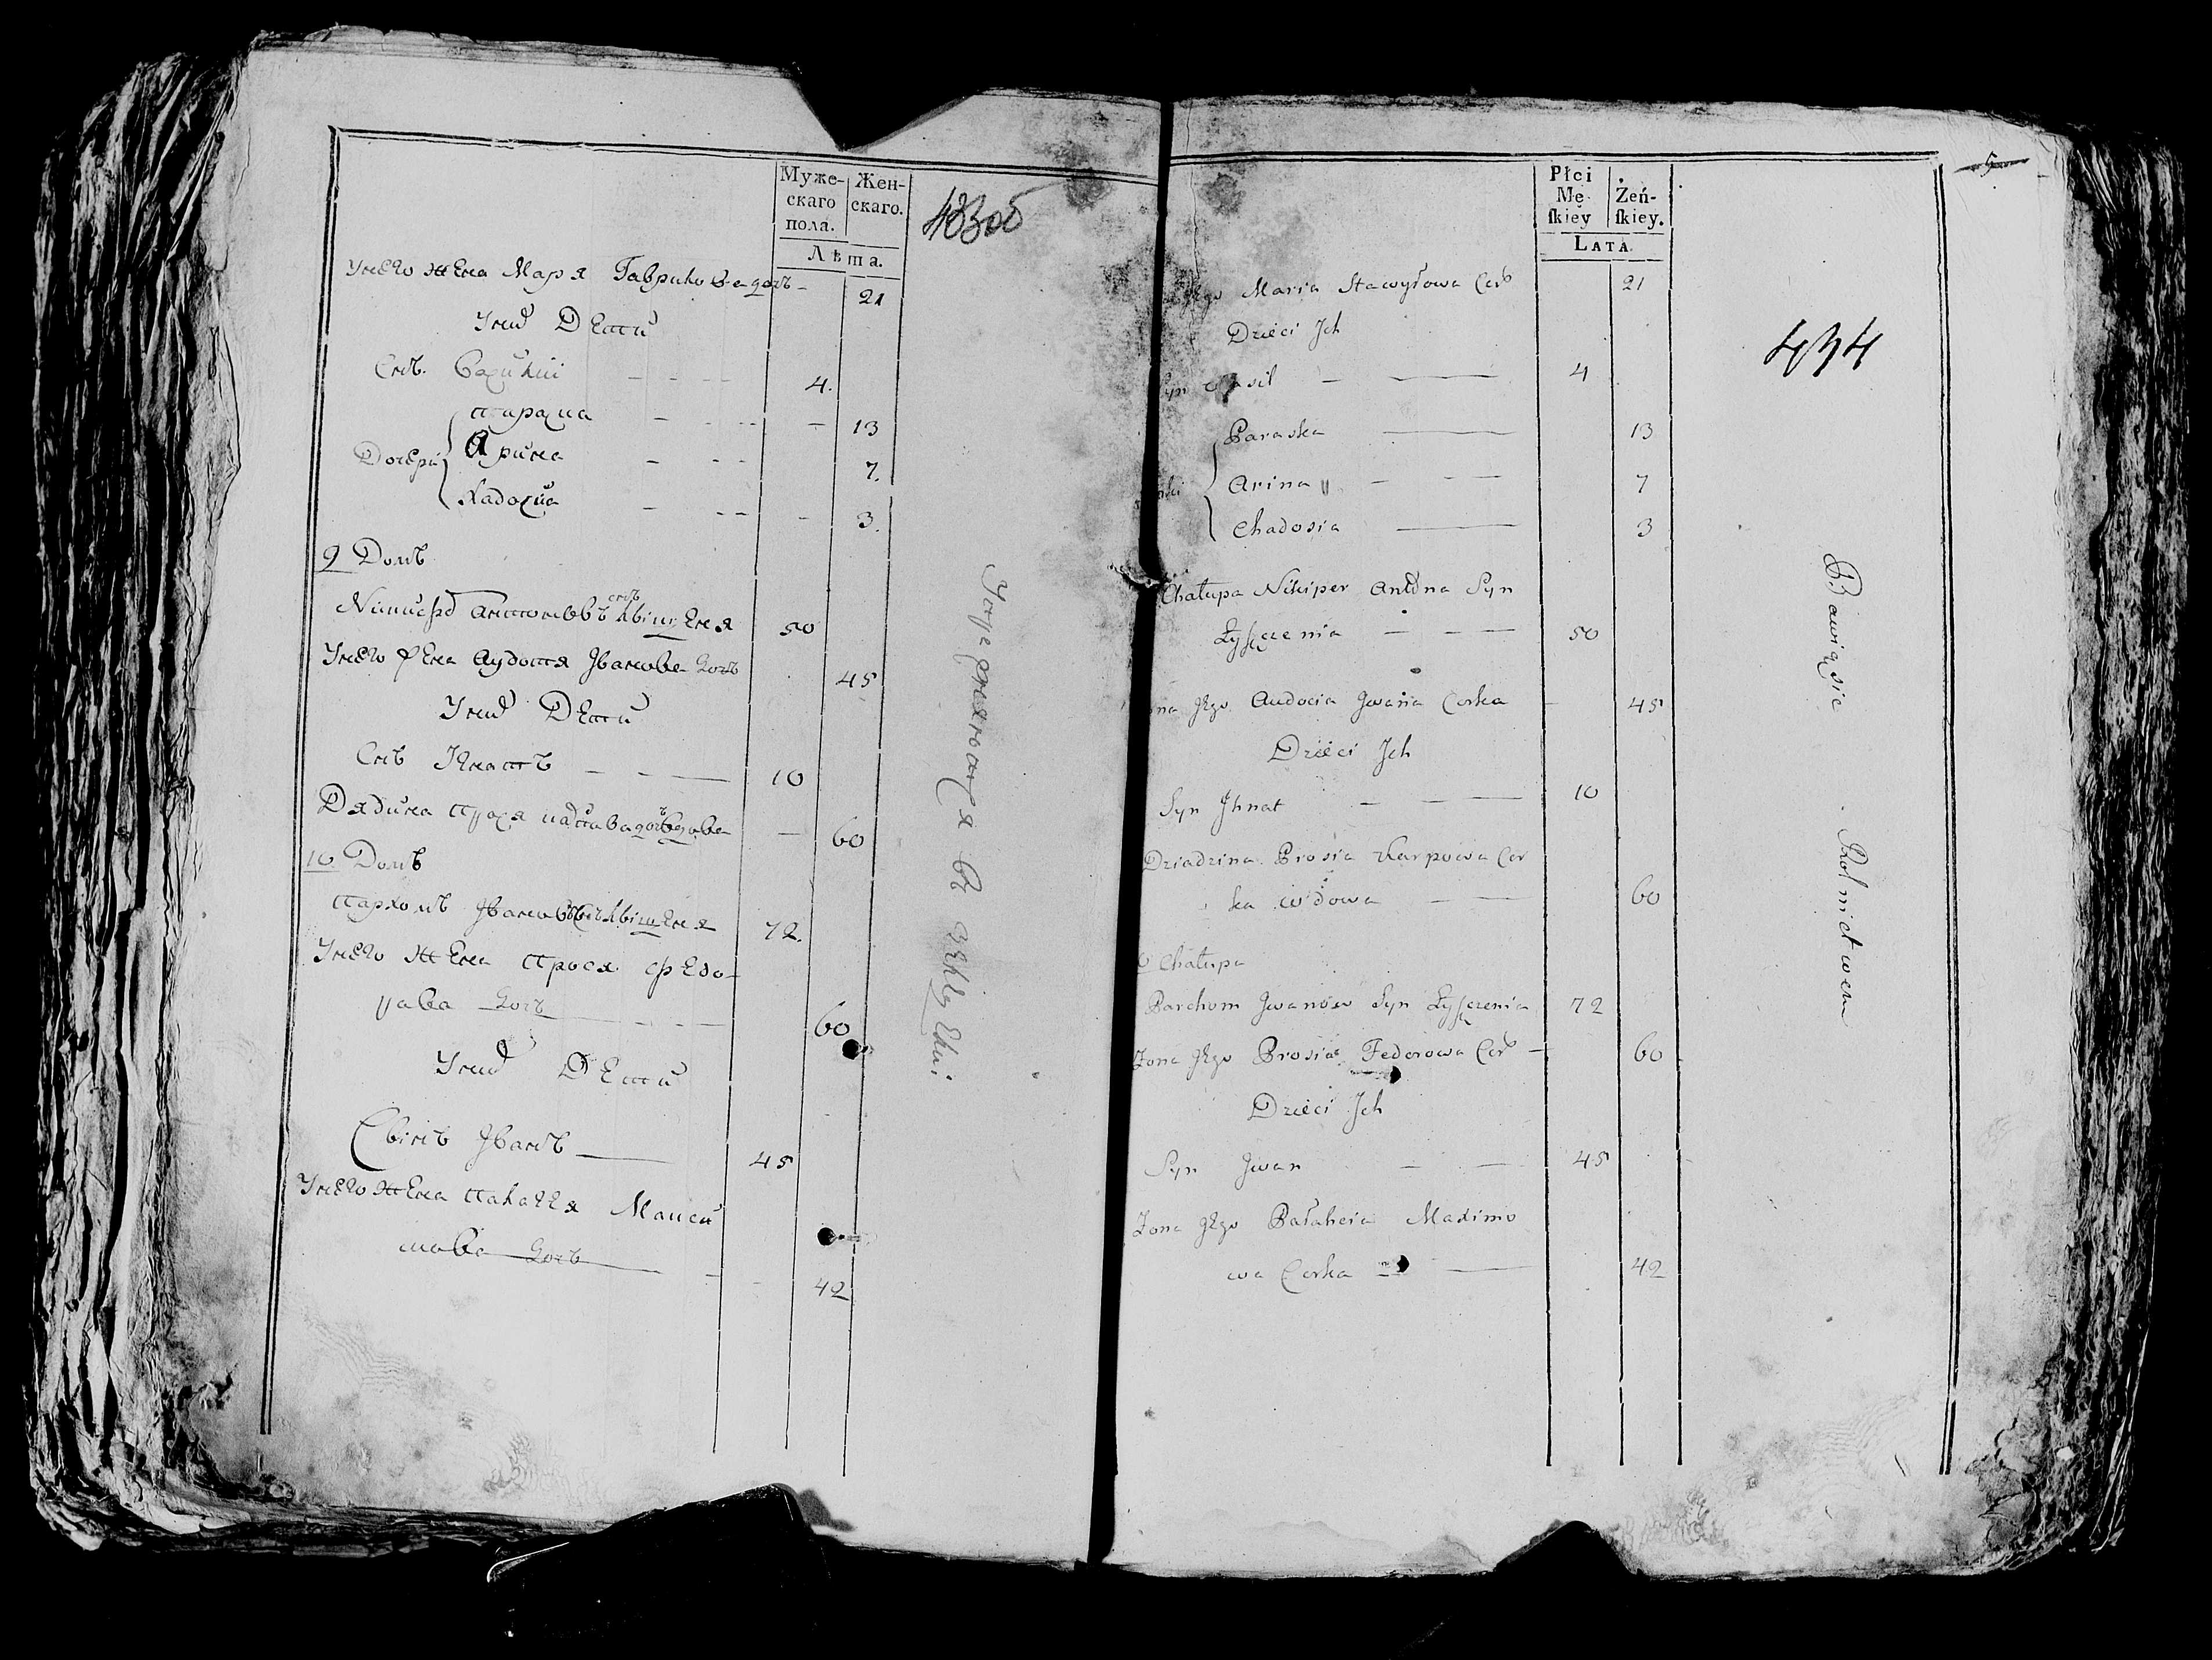 Муже-
скаго
пола.
Жен-
скаго.
Лѣта.
433об
Унего жена Маря Гаврилова дочъ 21
Унихъ Дети
Снъ. Василій 4.
Дочери
13
Арина 7.
Хадосия 3.
9 Домъ
Никиферъ Антоновъ снъ 50
Унего жена Аудотя Јванова дочъ 45
Унихъ Дети
Снъ Јгнатъ 10
Дядина Прося вдова 60
10 Домъ
Пархомъ Јвановъ 72.
Унего жена Прося Федо-
рава дочъ 60
Унихъ Дети
Јванъ 45
Унего жена Палагея Макси
мова дочъ 42
5
Płci
Mę-
ſkiey
Żeń-
ſkiey.
LATA.
434
Jego Maria Stawyłowa Cor 21
Dzieci Jch
Syn Wasil 4
Paraska 13
Arina 7
Chadosia 3
Chałupa Nikiper Antona Syn
Łyſzczenia 50
Jego Audocia Jwana Corka 45
Dzieci Jch
Syn Jhnat 10
Dziadzina Prosia Karpowa Cor
ka wdowa 60
Chałupa
Parchom Jwanow Syn Łyſzczenia 72
Zona Jego Prosia Fedorowa Cor 60
Dzieci Jch
Syn Jwan 45
Zona Jego Pałaheia Maximo
wa Corka 42
Bawią sie Rolnictwem